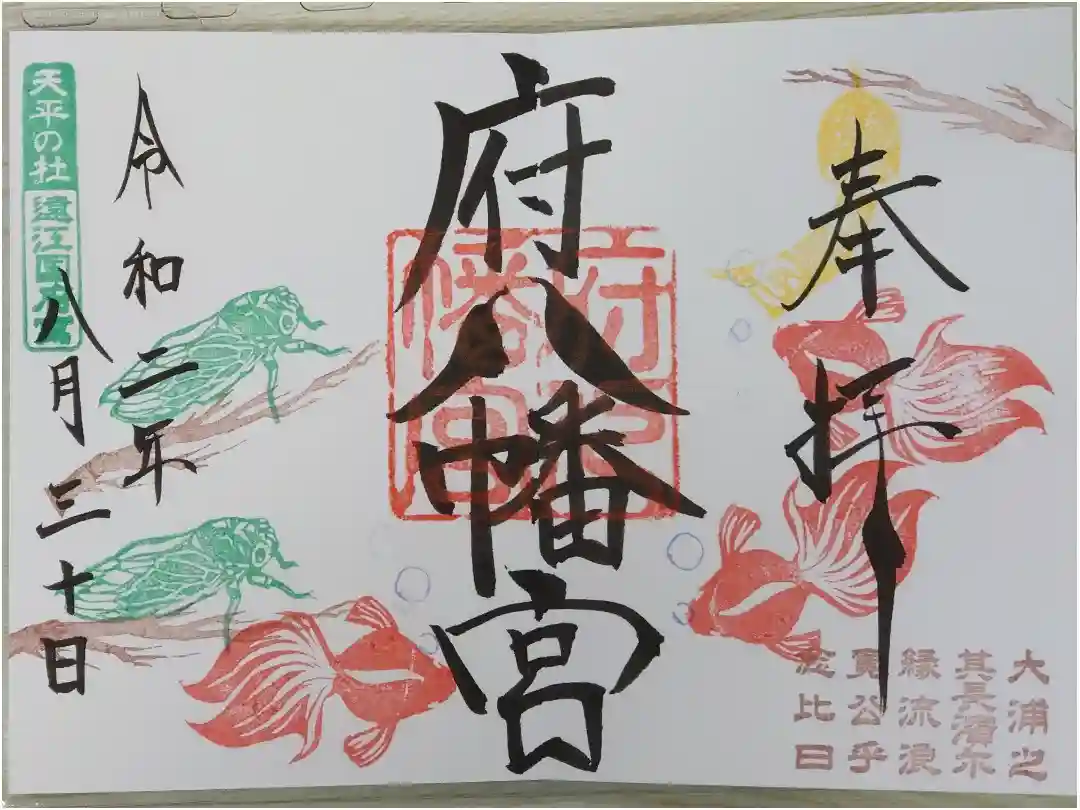 奉拝
大浦之
其長濱尓
縁流浪
寛公乎
念比日
府八幡宮
府八幡宮
令和二年
八月三十日
天平の杜
遠江国